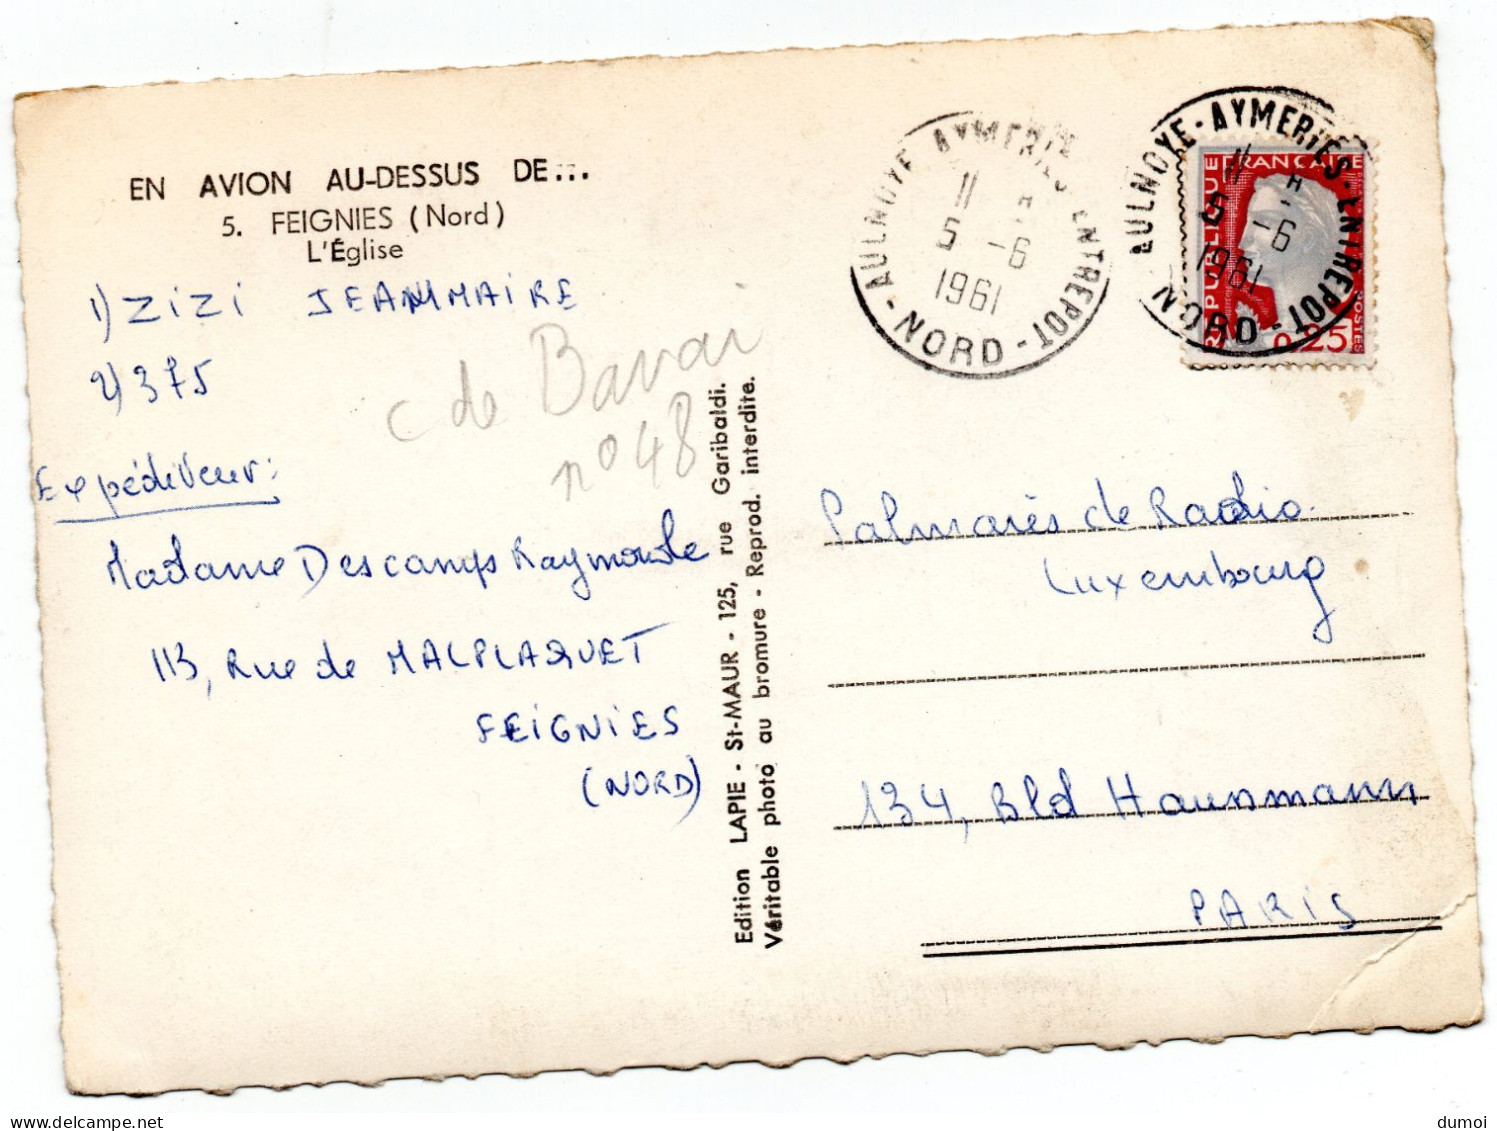 EN AVION AU-DESSUS DE...
5. FEIGNIES (Nord)
L'Église
1) ZIZI JEANMAIRE
2) 375
c de Bavai
n° 48
Expéditeur:
Madame Descamps Raymonde
113, Rue de MALPLAQUET
FEIGNIES
(NORD)
Edition LAPIE - St-MAUR - 125, rue Garibaldi.
Véritable photo au bromure - Reprod. interdite.
AULNOYE-AYMERIES-ENTREPOT
11
5 -6
1961
- NORD -
AULNOYE-AYMERIES-ENTREPOT
11
5 -6
1961
NORD -
REPUBLIQUE FRANÇAISE
POSTES
0,25
Palmarès de Radio
Luxembourg
134, Bld Hausmann
PARIS
dumoi